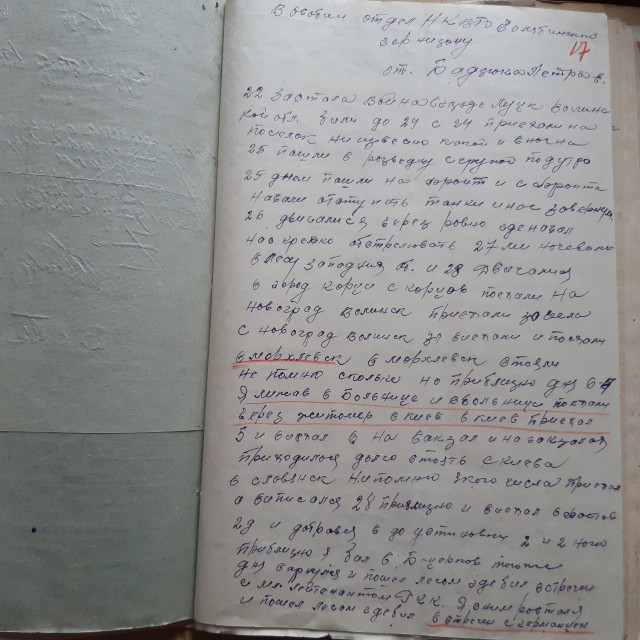 В особый отдел НКВД
гарнизону
17
от. Бадзюна Петра в.
22 застала война в городе Луцк Волинс
кой обл. били до 24 с 24 приехали на
поселок ни известно какой и в ночь на
25 пошли в розведку с групой под утро
25 днем пошли на фронт и с фронта
начали отступать танки и нас завернули
26 двигались через ровно где начал
нас крепко обстреловать 27 ми ночевали
в лесу западния и 28 двигался
в город Корци с Корцов поехали на
Новоград Волинск приехали
с Новоград Волинск виехали и поехали
в Мархлевск в Мархлевск стояли
не помню сколько но приблизно дня
Я лижав в Больнице и с больници поехали
через житомер в киев в киев приехал
5 и виехал 6 на вакзал и на вакзалах
приходилося долго стоять с киева
в словянск ни помню якого числа приехал
а виписался 28 приблизно и виехал в ростов
29 и добрався до установки 2 и 2 ного
приблизно я бал в Б-церков
дня вернулся и пошел лесом где бил встречи
с мл лейтенантом РКК. Я с ним ростался
и пошел лесом где бил в встречи с германцем